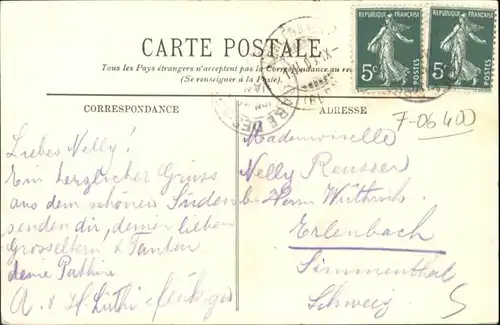 CARTE POSTALE
Tous les Pays étrangers n'acceptent pas la Correspondance au
(Se renseigner à la Poste).
RÉPUBLIQUE FRANÇAISE
5c
POSTES
RÉPUBLIQUE FRANÇAISE
5c
POSTES
CORRESPONDANCE
ADRESSE
7-06400
Liebes Nelly!
Ein herzlicher Gruss
aus dem schönen Süden
senden dir, deinen lieben
Grosseltern & Tanten
deine Pathin
A. & H. Lüthi
Mademoiselle
Nelly Reusser
bei Herrn Wüthrich
Erlenbach
Simmenthal
Schweiz
5